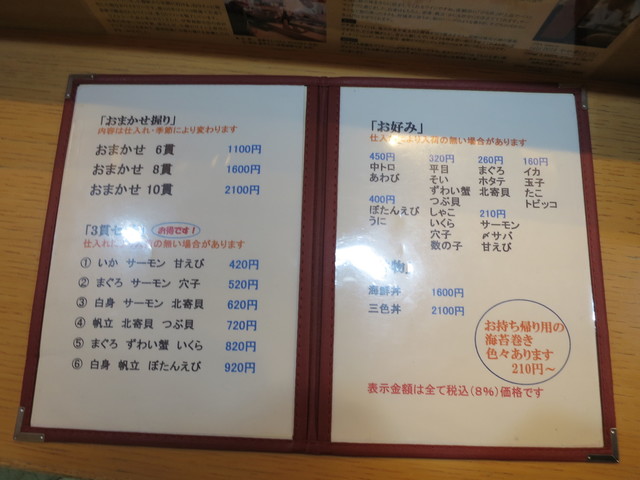 「おまかせ握り」
内容は仕入れ・季節により変わります
おまかせ 6貫 1100円
おまかせ 8貫 1600円
おまかせ 10貫 2100円
「3貫セ お得です!
仕入れに の無い場合があります
① いか サーモン 甘えび 420円
② まぐろ サーモン 穴子 520円
③ 白身 サーモン 北寄貝 620円
④ 帆立 北寄貝 つぶ貝 720円
⑤ まぐろ ずわい蟹 いくら 820円
⑥ 白身 帆立 ぼたんえび 920円
「お好み」
仕入れにより入荷の無い場合があります
450円
中トロ
あわび
400円
ぼたんえび
うに
320円
平目
そい
ずわい蟹
つぶ貝
しゃこ
いくら
穴子
数の子
260円
まぐろ
ホタテ
北寄貝
210円
サーモン
〆サバ
甘えび
160円
イカ
玉子
たこ
トビッコ
物」
海鮮丼 1600円
三色丼 2100円
お持ち帰り用の
海苔巻き
色々あります
210円~
表示金額は全て税込(8%)価格です